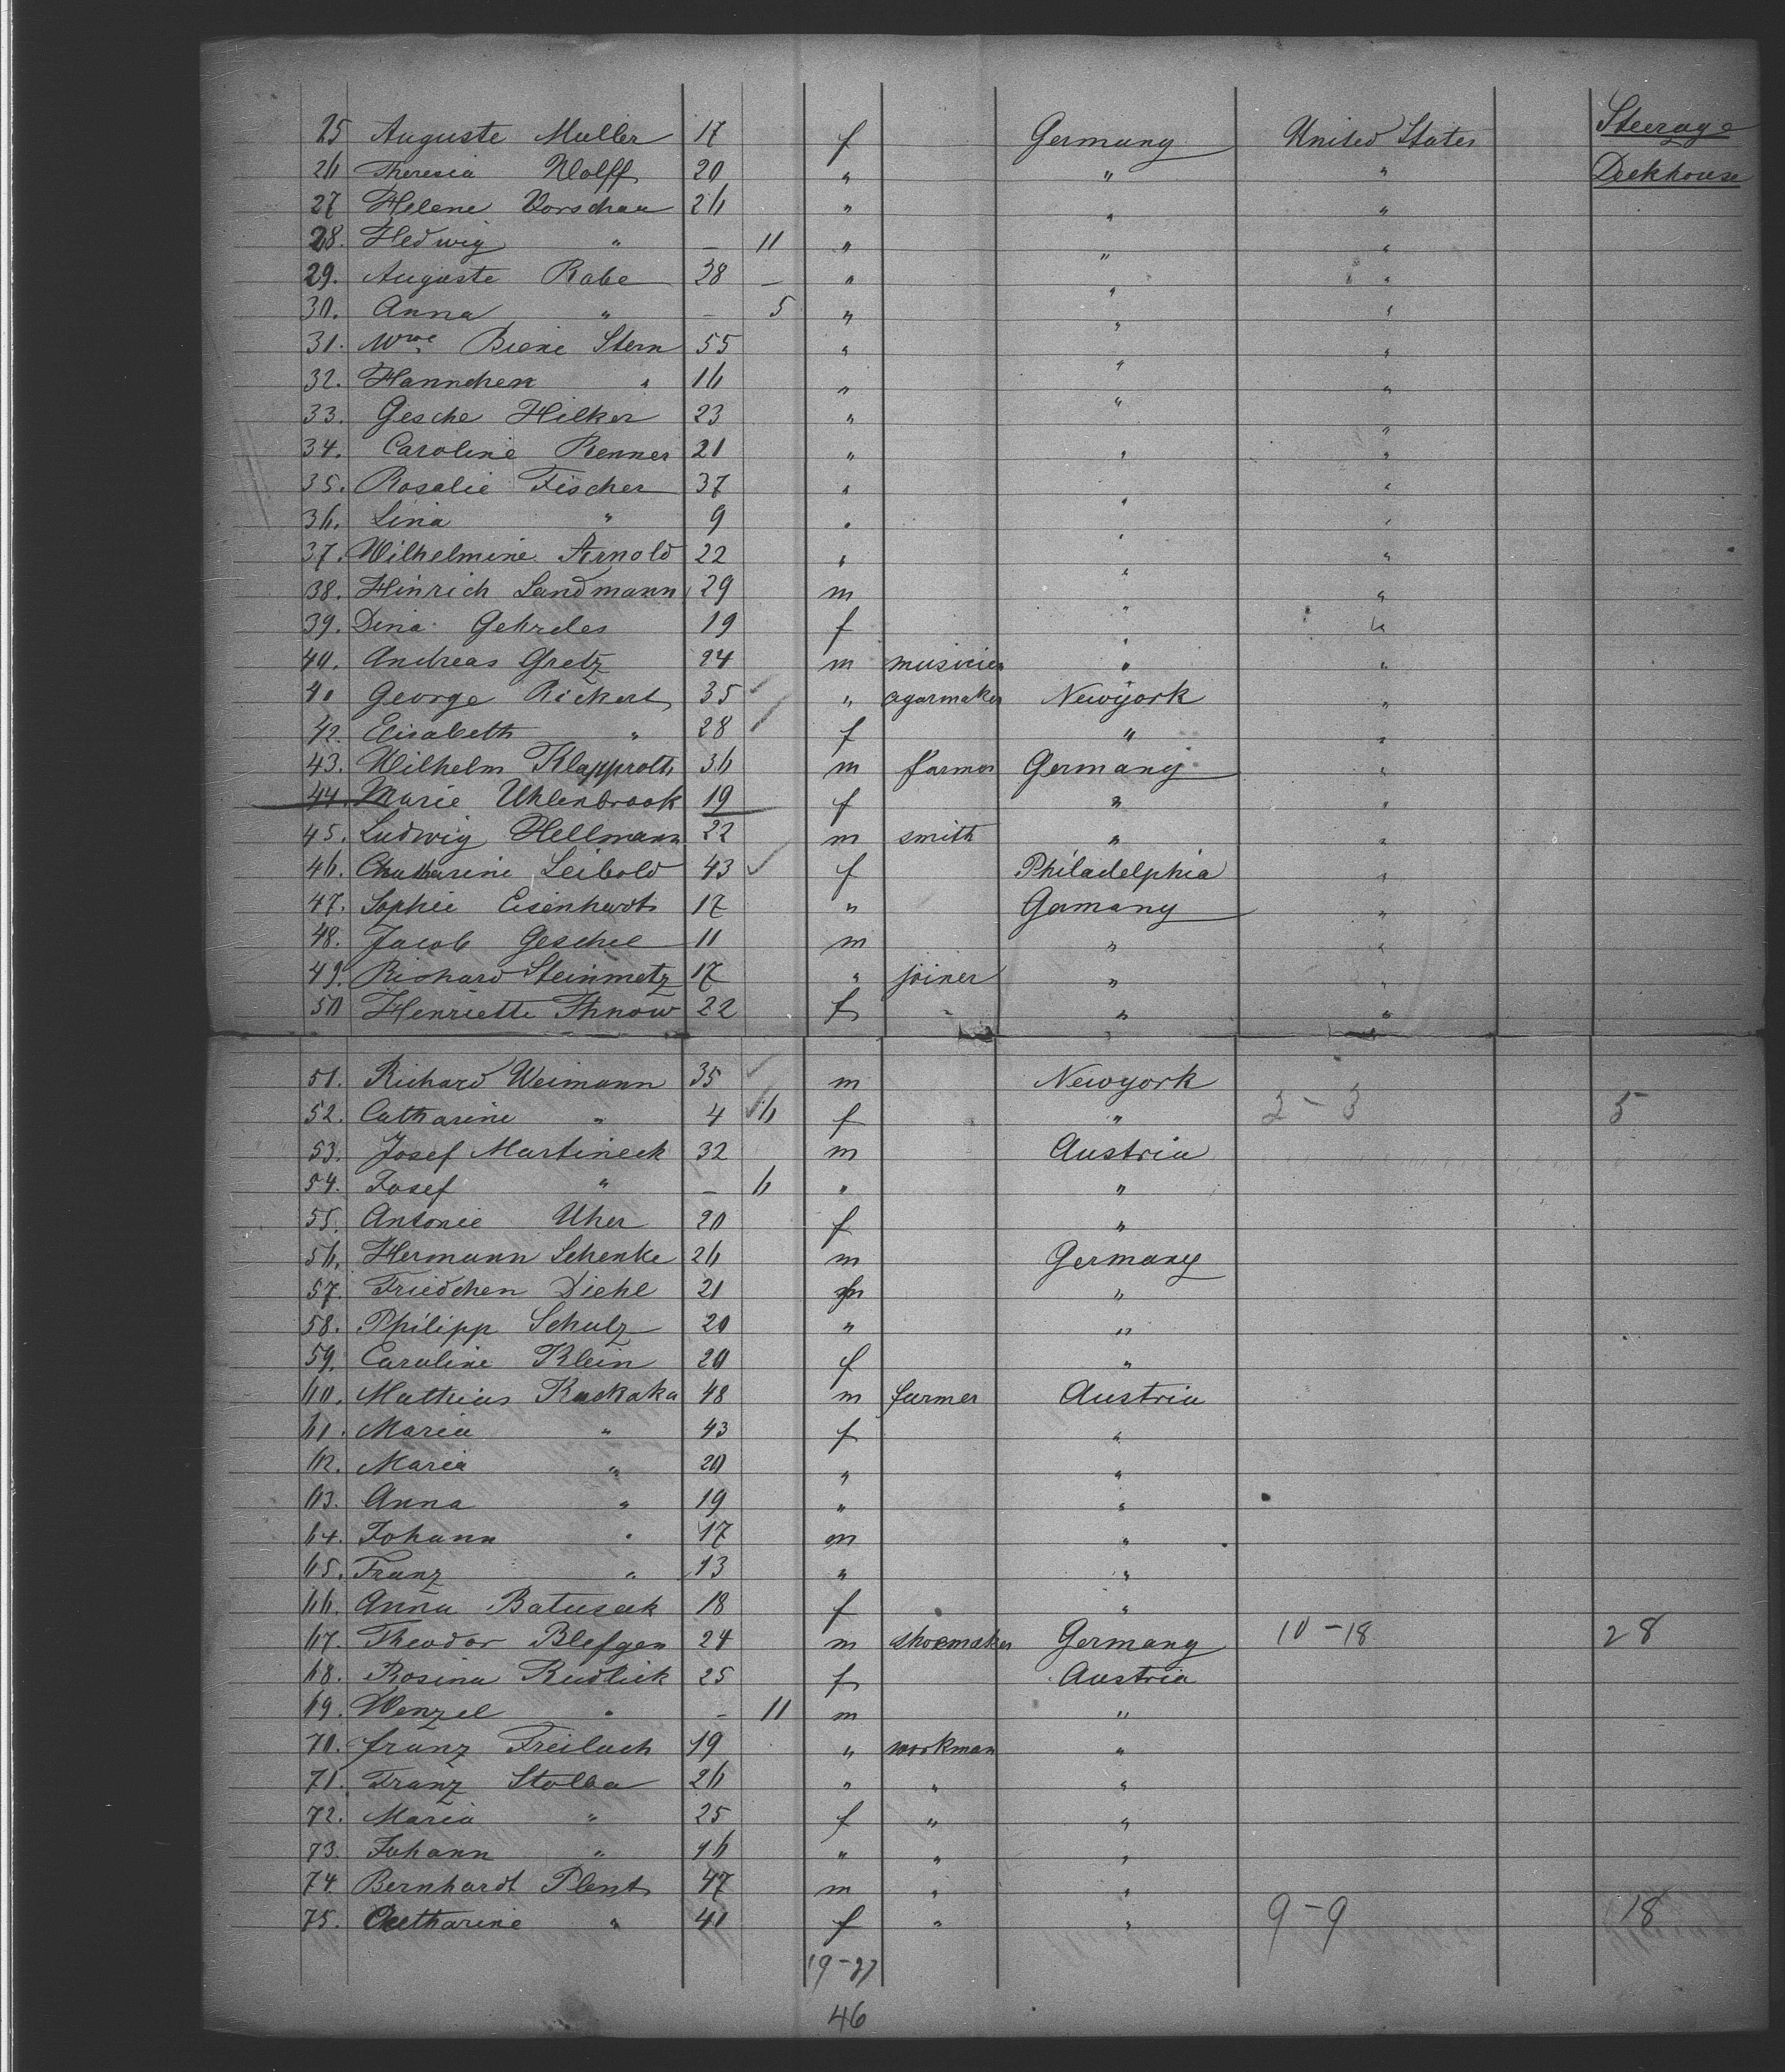 25 Auguste Muller 17 f Germany United States Steerage
26 Theresia Wolff 20 " " " Deckhouse
27 Helene Vorschau 26 " " "
28. Hedwig " — 11 " " "
29. Auguste Rabe 38 — " " "
30. Anna " — 5 " " "
31. Wwe Biene Stern 55 " " "
32. Hannchen " 16 " " "
33. Gesche Hilker 23 " " "
34. Caroline Renner 21 " " "
35. Rosalie Fischer 37 " " "
36. Lina " 9 " " "
37. Wilhelmine Arnold 22 " " "
38. Hinrich Landmann 29 m " "
39. Dina Gehrdes 19 f " "
40. Andreas Gretz 24 m musicien " "
41 George Rickert 35 " cigarmaker Newyork "
42. Elisabeth " 28 f " "
43. Wilhelm Klapproth 36 m farmer Germany "
44. Marie Uhlenbrook 19 f " "
45. Ludwig Hellmann 22 m smith " "
46. Catharine Leibold 43 f Philadelphia "
47. Sophie Eisenhardt 17 " Germany "
48. Jacob Geschel 11 m " "
49. Richard Steinmetz 17 " joiner " "
50 Henriette Thnow 22 f " "
51. Richard Weimann 35 m Newyork
52. Catharine " 4 6 f " 2 - 3 5
53. Josef Martineck 32 m Austria
54. Josef " — 6 " "
55. Antonie Uher 20 f "
56. Hermann Schenke 26 m Germany
57. Friedchen Diehl 21 "
58. Philipp Schulz 20 " "
59. Caroline Klein 20 f "
60. Mathias Kuckaka 48 m farmer Austria
61. Maria " 43 f "
62. Maria " 20 " "
63. Anna " 19 " "
64. Johann " 17 m "
65. Franz " 13 " "
66. Anna Batuseck 18 f "
67. Theodor Blefgen 24 m shoemaker Germany 10 - 18 28
68. Rosina Rudlick 25 f Austria
69. Wenzel " — 11 m "
70. Franz Freilach 19 " workman "
71. Franz Stolba 26 " " "
72. Maria " 25 f " "
73. Johann " 16 " " "
74 Bernhardt Plent 47 m " "
75. Catharine " 41 f " " 9 - 9 18
19 - 27
46